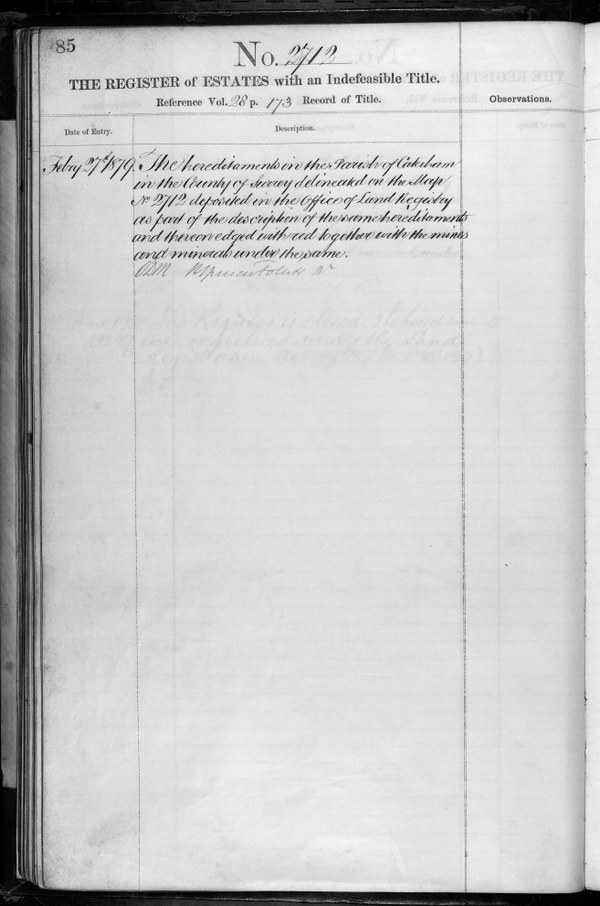 85
No. 2712
THE REGISTER of ESTATES with an Indefeasible Title.
Reference Vol. 28 p. 173 Record of Title.
Observations.
Date of Entry.
Description.
Febry 27th 1879. The hereditaments in the Parish of Caterham
in the County of Surrey delineated on the Map
No 2712 deposited in the Office of Land Registry
as part of the description of the same hereditaments
and thereon edged with red together with the mines
and minerals under the same.